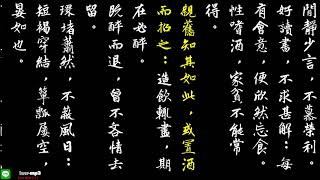 閒靜少言，不慕榮利。
好讀書，不求甚解；每
有會意，便欣然忘食。
性嗜酒，家貧不能常
得。
親舊知其如此，或置酒
而招之；造飲輒盡，期
在必醉。
既醉而退，曾不吝情去
留。
環堵蕭然，不蔽風日；
短褐穿結，簞瓢屢空，
晏如也。